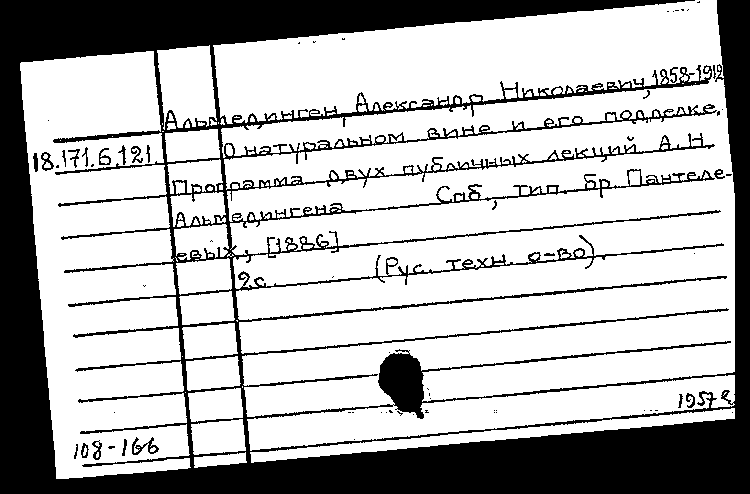 Альмединген, Александр Николаевич, 1858-1912
18.171.6.121. О натуральном вине и его подделке.
Программа двух публичных лекций А.Н.
Альмедингена. Спб., тип. бр. Пантеле-
евых, [1886]
2с. (Рус. техн. о-во).
1957 г.
108-166